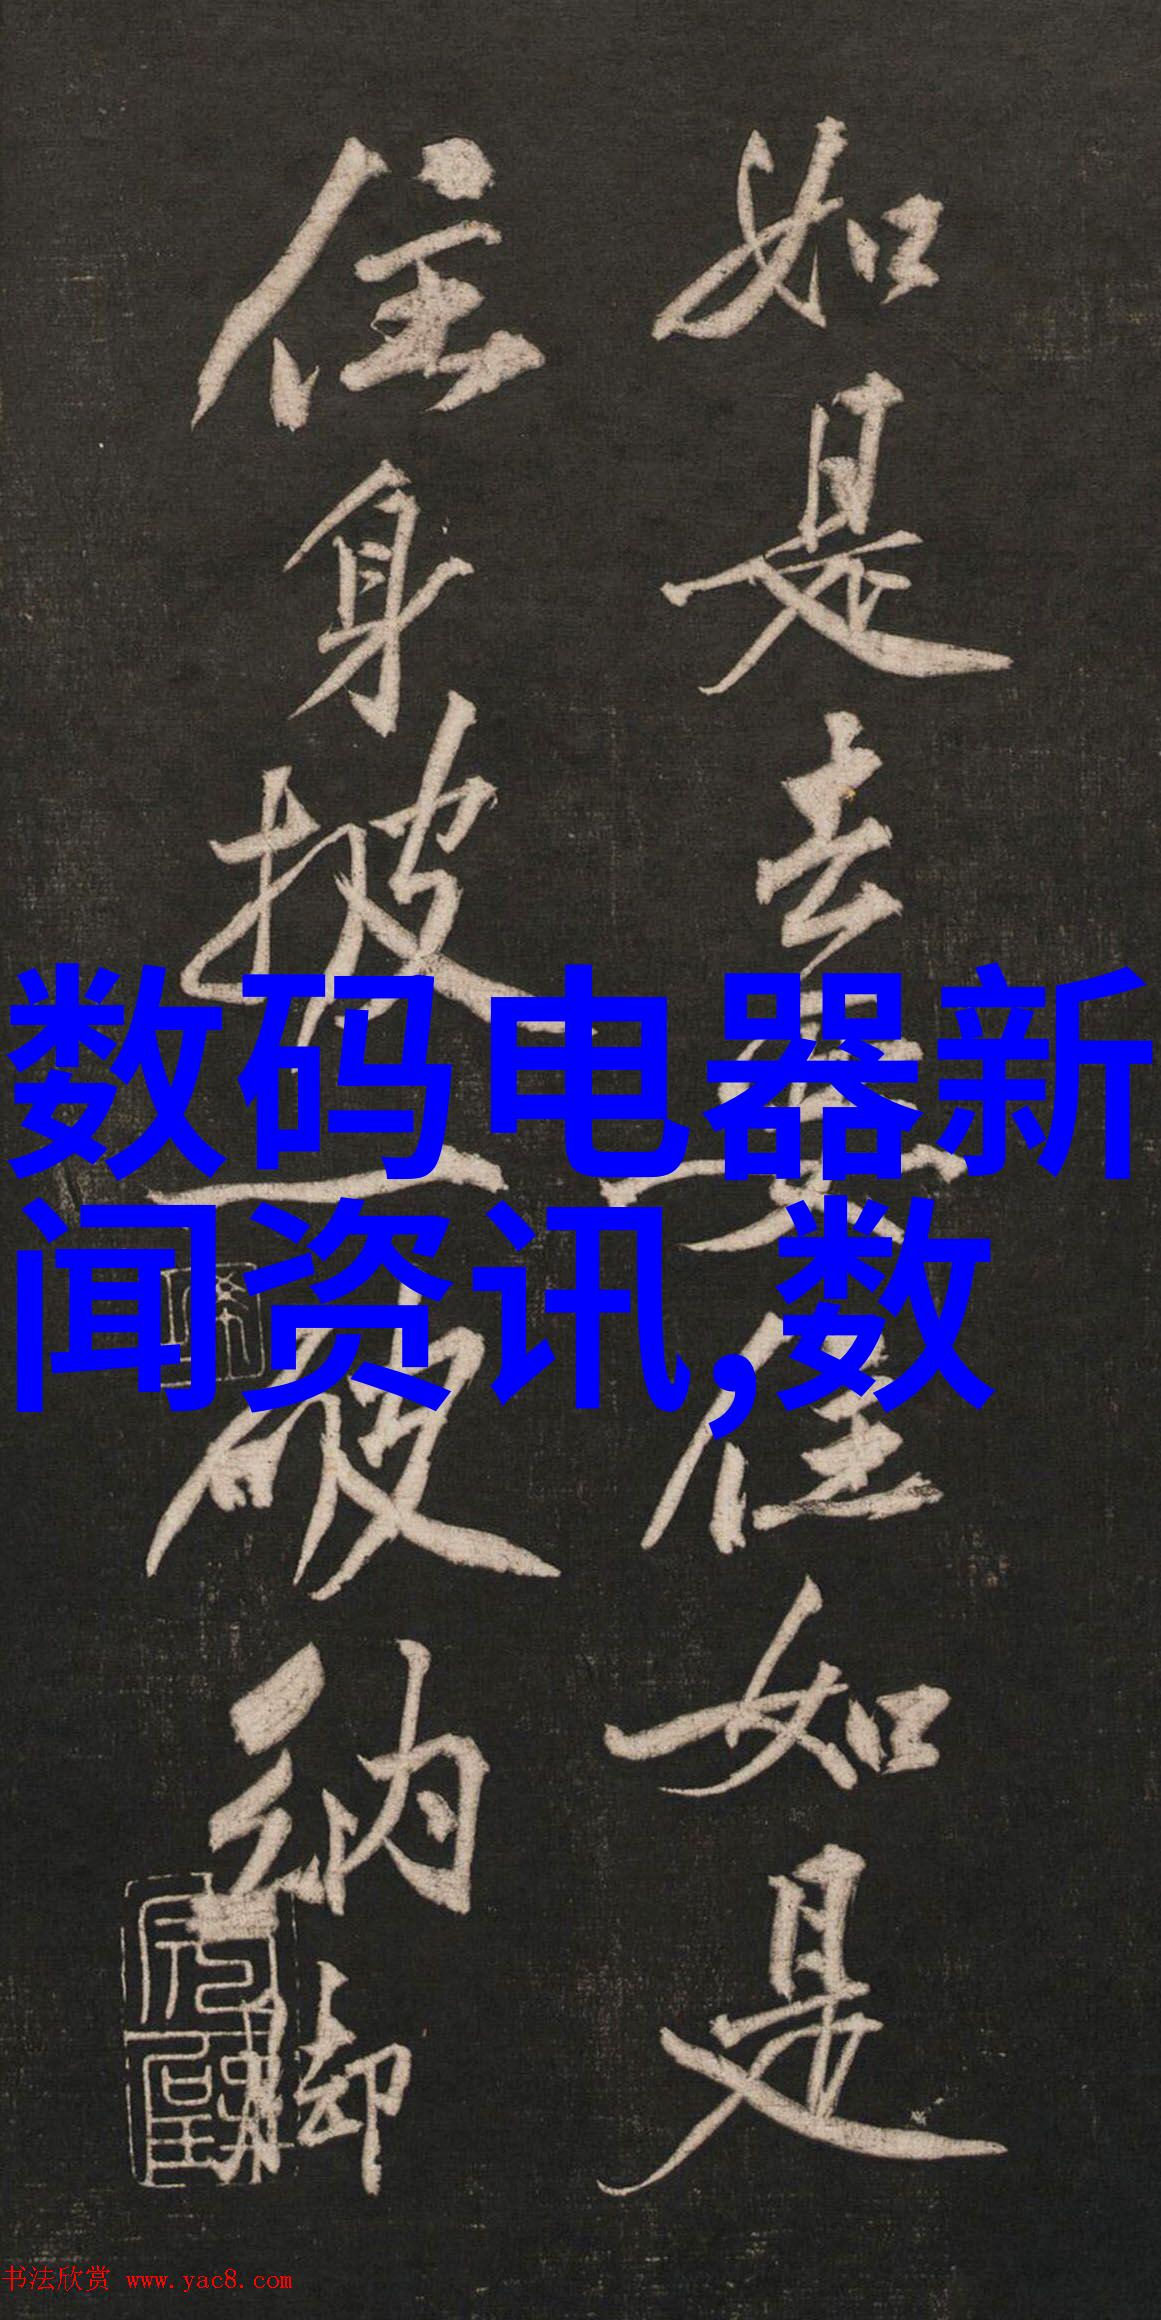 如是去要住如是
住身披一破衲脚
数码电器新
闻资讯,数
书法欣赏 www.yac8.com